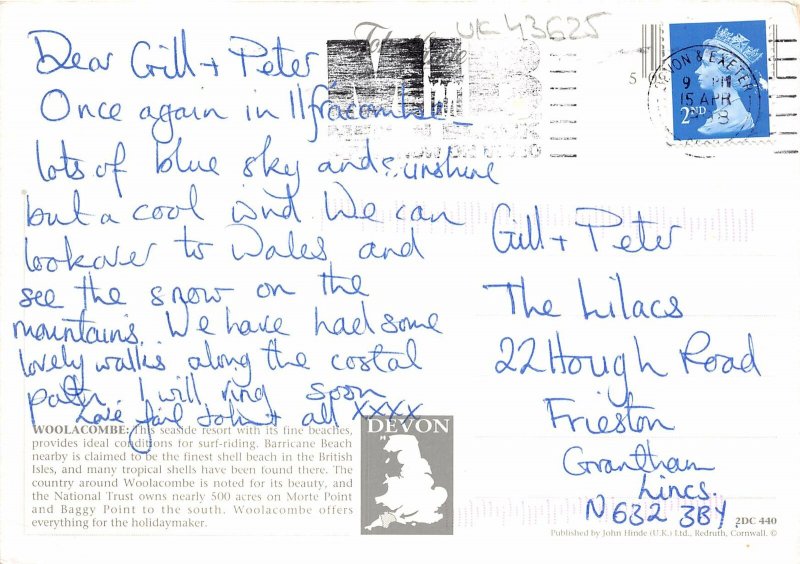 Dear Gill + Peter
Once again in Ilfracombe
lots of blue sky and sunshine
but a cool wind We can
lookover to Wales and
see the snow on the
mountains. We have had some
lovely walks along the costal
path. I will ring soon
Love John + all xxxx
UK 43625
John Hinde
5
DEVON & EXETER
9 PM
15 APR
2ND
Gill + Peter
The Lilacs
22 Hough Road
Frieston
Grantham
Lincs.
N632 3BY
WOOLACOMBE: This seaside resort with its fine beaches,
provides ideal conditions for surf-riding. Barricane Beach
nearby is claimed to be the finest shell beach in the British
Isles, and many tropical shells have been found there. The
country around Woolacombe is noted for its beauty, and
the National Trust owns nearly 500 acres on Morte Point
and Baggy Point to the south. Woolacombe offers
everything for the holidaymaker.
DEVON
2DC 440
Published by John Hinde (U.K.) Ltd., Redruth, Cornwall. ©